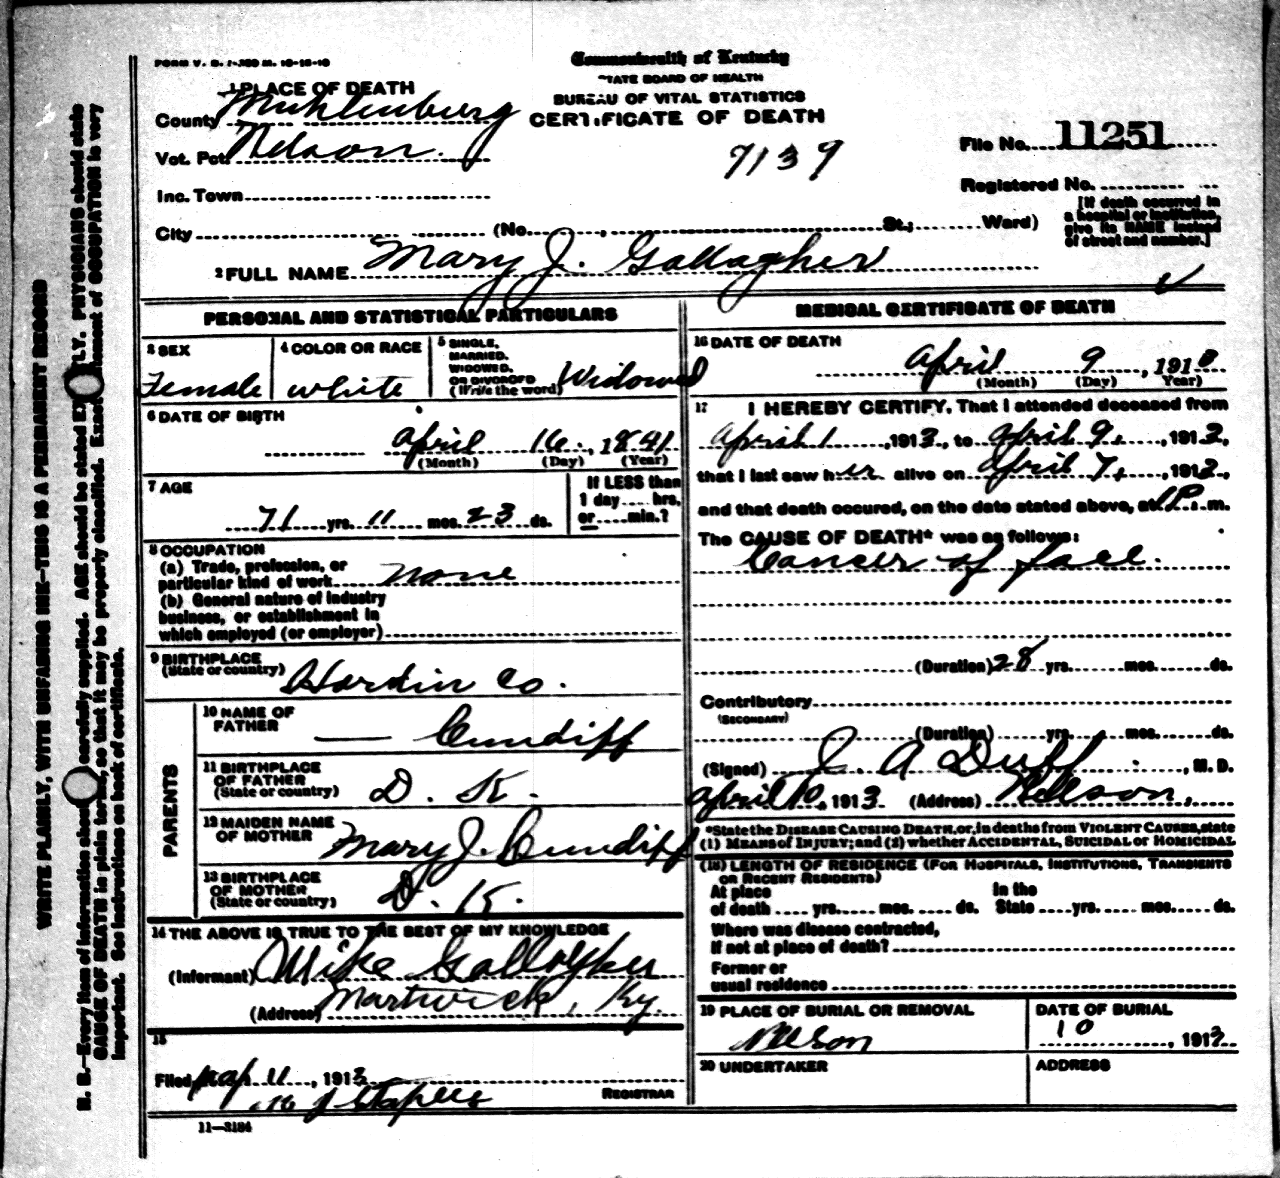 FORM V. S. 1-350 M. 10-16-10
Commonwealth of Kentucky
STATE BOARD OF HEALTH
BUREAU OF VITAL STATISTICS
CERTIFICATE OF DEATH
1 PLACE OF DEATH
County Muhlenburg
Vot. Pct. Nelson.
Inc. Town
City (No. , St.; Ward)
7139
File No. 11251
Registered No.
[If death occurred in
a hospital or institution,
give its NAME instead
of street and number.]
2 FULL NAME Mary J. Gallagher
PERSONAL AND STATISTICAL PARTICULARS
3 SEX
Female
4 COLOR OR RACE
white
5 SINGLE,
MARRIED,
WIDOWED,
OR DIVORCED
(Write the word) Widowed
6 DATE OF BIRTH
April 16, 1841
(Month) (Day) (Year)
7 AGE
71 yrs. 11 mos. 23 ds.
If LESS than
1 day .... hrs.
or ..... min.?
8 OCCUPATION
(a) Trade, profession, or
particular kind of work none
(b) General nature of industry
business, or establishment in
which employed (or employer)
9 BIRTHPLACE
(State or country) Hardin Co.
PARENTS
10 NAME OF
FATHER — Cundiff
11 BIRTHPLACE
OF FATHER
(State or country) D. K.
12 MAIDEN NAME
OF MOTHER Mary J. Cundiff
13 BIRTHPLACE
OF MOTHER
(State or country) D. K.
14 THE ABOVE IS TRUE TO THE BEST OF MY KNOWLEDGE
(Informant) Mike Gallagher
(Address) Martwick, Ky.
15
Filed 11, 1913
Staples REGISTRAR
11—3184
MEDICAL CERTIFICATE OF DEATH
16 DATE OF DEATH
April 9, 191
(Month) (Day) (Year)
17 I HEREBY CERTIFY, That I attended deceased from
April 1, 1913, to April 9, 1913,
that I last saw her alive on April 7, 1913,
and that death occured, on the date stated above, at 1 P. m.
The CAUSE OF DEATH* was as follows:
Cancer of face.
(Duration) 28 yrs. mos. ds.
Contributory
(SECONDARY)
(Duration) yrs. mos. ds.
(Signed) J. A Duff, M. D.
April 10, 1913 (Address) Nelson,
*State the DISEASE CAUSING DEATH, or, in deaths from VIOLENT CAUSES, state
(1) MEANS of INJURY; and (2) whether ACCIDENTAL, SUICIDAL or HOMICIDAL
(18) LENGTH OF RESIDENCE (FOR HOSPITALS, INSTITUTIONS, TRANSIENTS
OR RECENT RESIDENTS)
At place In the
of death .... yrs. mos. ds. State .... yrs. mos. ds.
Where was disease contracted,
If not at place of death?
Former or
usual residence
19 PLACE OF BURIAL OR REMOVAL
Nelson
DATE OF BURIAL
10, 1913
20 UNDERTAKER
ADDRESS
WRITE PLAINLY, WITH UNFADING INK—THIS IS A PERMANENT RECORD
N. B.—Every item of information should be carefully supplied. AGE should be stated EXACTLY. PHYSICIANS should state
CAUSE OF DEATH in plain terms, so that it may be properly classified. Exact statement of OCCUPATION is very
important. See instructions on back of certificate.